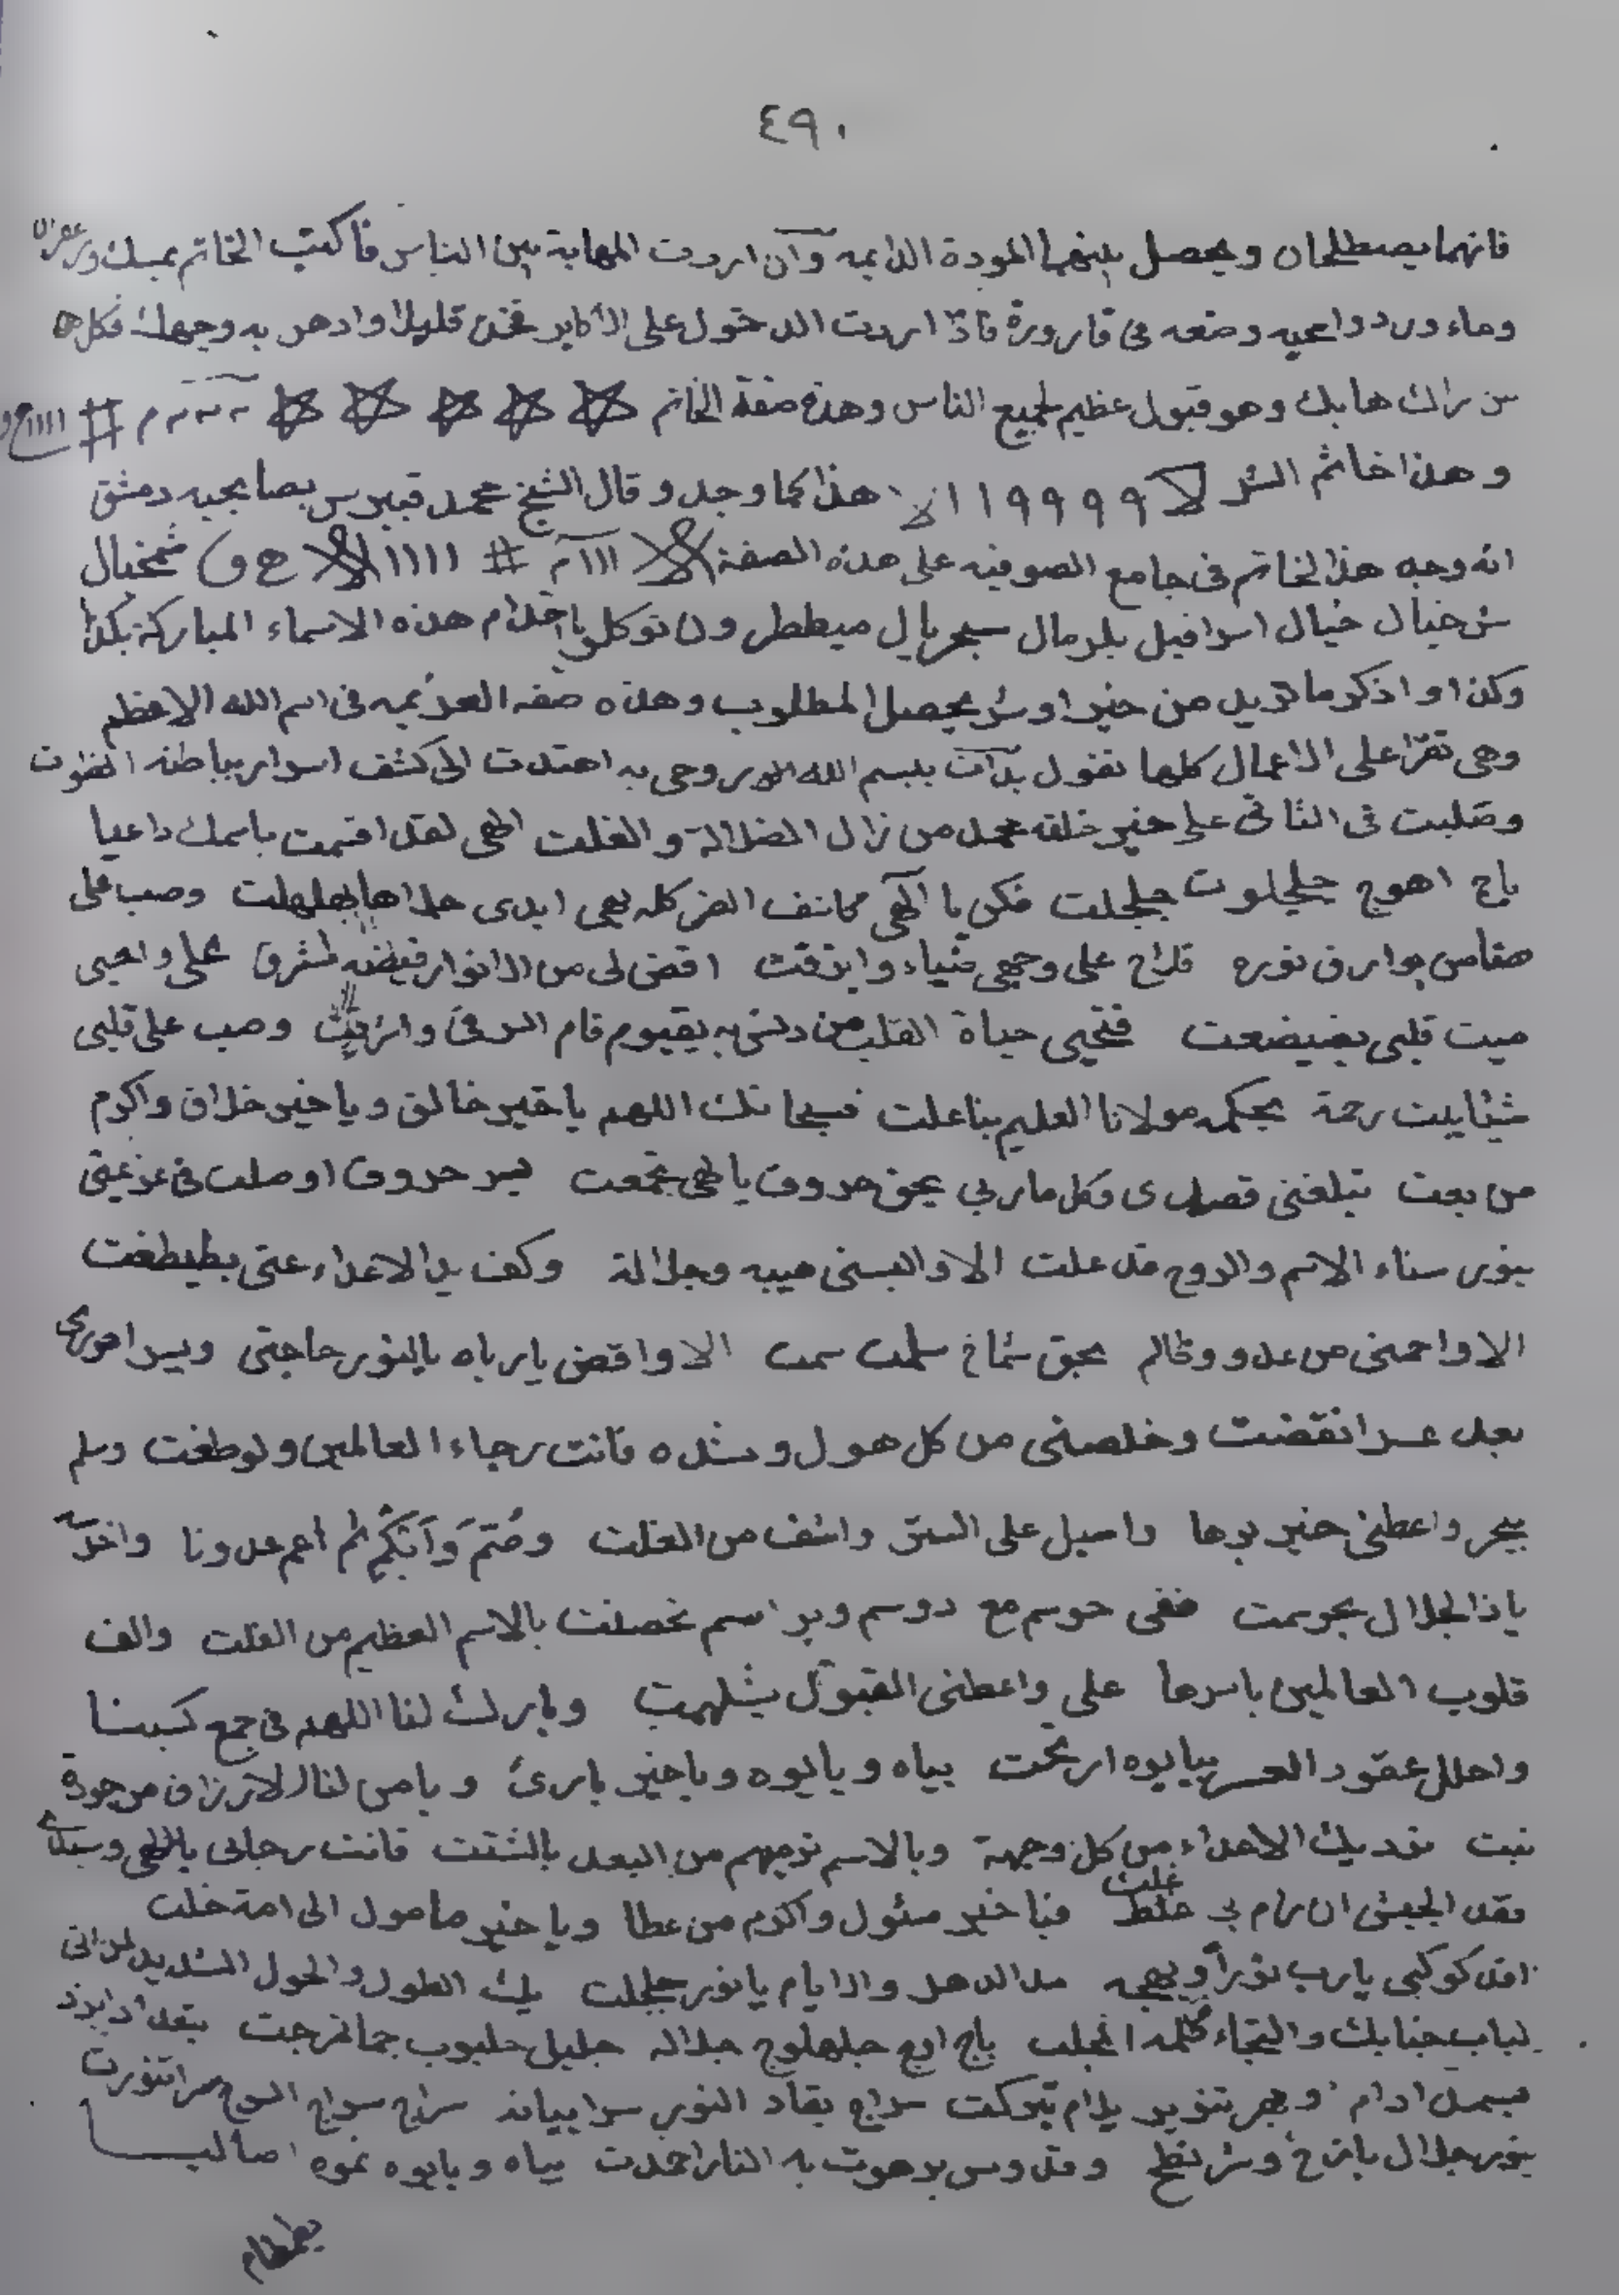 ٤٩٠
فانهما يصطلحان ويحصل بينهما المودة الدايمه وان اردت المهابة بين الناس فاكتب الخاتم بمسك وزعفران
وماء ورد وامحيه وضعه فى قارورة فاذا اردت الدخول على الاكابر فخذ قليلا وادهن به وجهك فكل
من راك هابك وهو قبول عظيم لجميع الناس وهذه صفة الخاتم
وهذا خاتم السر لا ٩٩٩٩١١ هذا كما وجد وقال الشيخ محمد قبيرس بصابحيه دمشق
انه وجد هذا الخاتم فى جامع الصوفيه على هذه الصفة شمخيال
شرخيال خيال اسرافيل ميططرون توكلوا يا خدام هذه الاسماء المباركة بكذا
وكذا واذكر ما تريد من خير او شر يحصل المطلوب وهذه صفه العزيمه فى اسم الله الاعظم
وهى تقرا على الاعمال كلها تقول بدات ببسم الله روحى به اهتدت الى كشف اسرار بباطنه انطوت
وصليت فى الثانى على خير خلقه محمد من زال الضلالة والغلت الهى لقد اقسمت باسمك داعيا
باج اهوج جلجلوت جلجلت فكن يا الهى كاشف الضر كله بهى ابدى هلهلت وصب على
بوارق نوره فلاح على وجهى ضياء وابرقت افض لى من الانوار فيضه لمشرق على واحيى
ميت قلبى بضيضعت فتحيى حياة القلب من دنس به بقيوم قام السر فى واشرقت وصب على قلبى
شئابيت رحمة بحكمه مولانا العليم بنا علت فسبحانك اللهم يا خير خالق ويا خير خلاق واكرم
من بعت تبلغنى قصدى وكل ماربى بحق حروف يا الهى تجمعت بسر حروف اوصلت فى عزيمتى
بنور سناء الاسم والروح قد علت الا والبسنى هيبه وجلالة وكف يد الاعداء عنى بطيطغت
الا واحمنى من عدو وظالم بحق شماخ سلمت سمت الا واقض يا رباه بالنور حاجتى ويسر امورى
بعد عسر انقضت وخلصنى من كل هول وشده فانت رجاء العالمين ولو طغت وسلم
ببحر واعطنى خير برها واسبل على الستر واشف من الغلت وصُمّ وَابْكُم ثم اعم عدونا واخرسه
يا ذا الجلال بحوسمت ففى حوسم مع دوسم وبراسم تحصنت بالاسم العظيم من الغلت والف
قلوب العالمين باسرها على واعطنى القبول بشلهمت وبارك لنا اللهم فى جمع كسبنا
واحلل عقود العسر بيايوه ارتخت بياه ويايوه ويا خير بارئ ويا من لنا الارزاق من جوده
نبت نرد بك الاعداء من كل وجهة وبالاسم نرميهم من البعد بالشتت فانت رجائى يا الهى وسيدى
فقد الجيش ان رام بى غلت فيا خير مسئول واكرم من عطا ويا خير مامول الى امة خلت
اقد كوكبى يارب نورا وبهجه مدا الدهر والايام يا نور جلجلت بك الطول والحول الشديد لمن اتى
لباب جنابك والتجاء ظلمه انجلت باج اهوج جلهلوج جلاله جليل جلجلوب جما تزحت بتعداد ابرذ
تبركت سراج بقاد النور سرا بيانه سراج سراج السرج سرا تنورت
بنور جلال بازخ وشرنطخ وقدوس برهوت به النار اخمدت بياه ويايوه نموه اصاليـــا
بطمطام